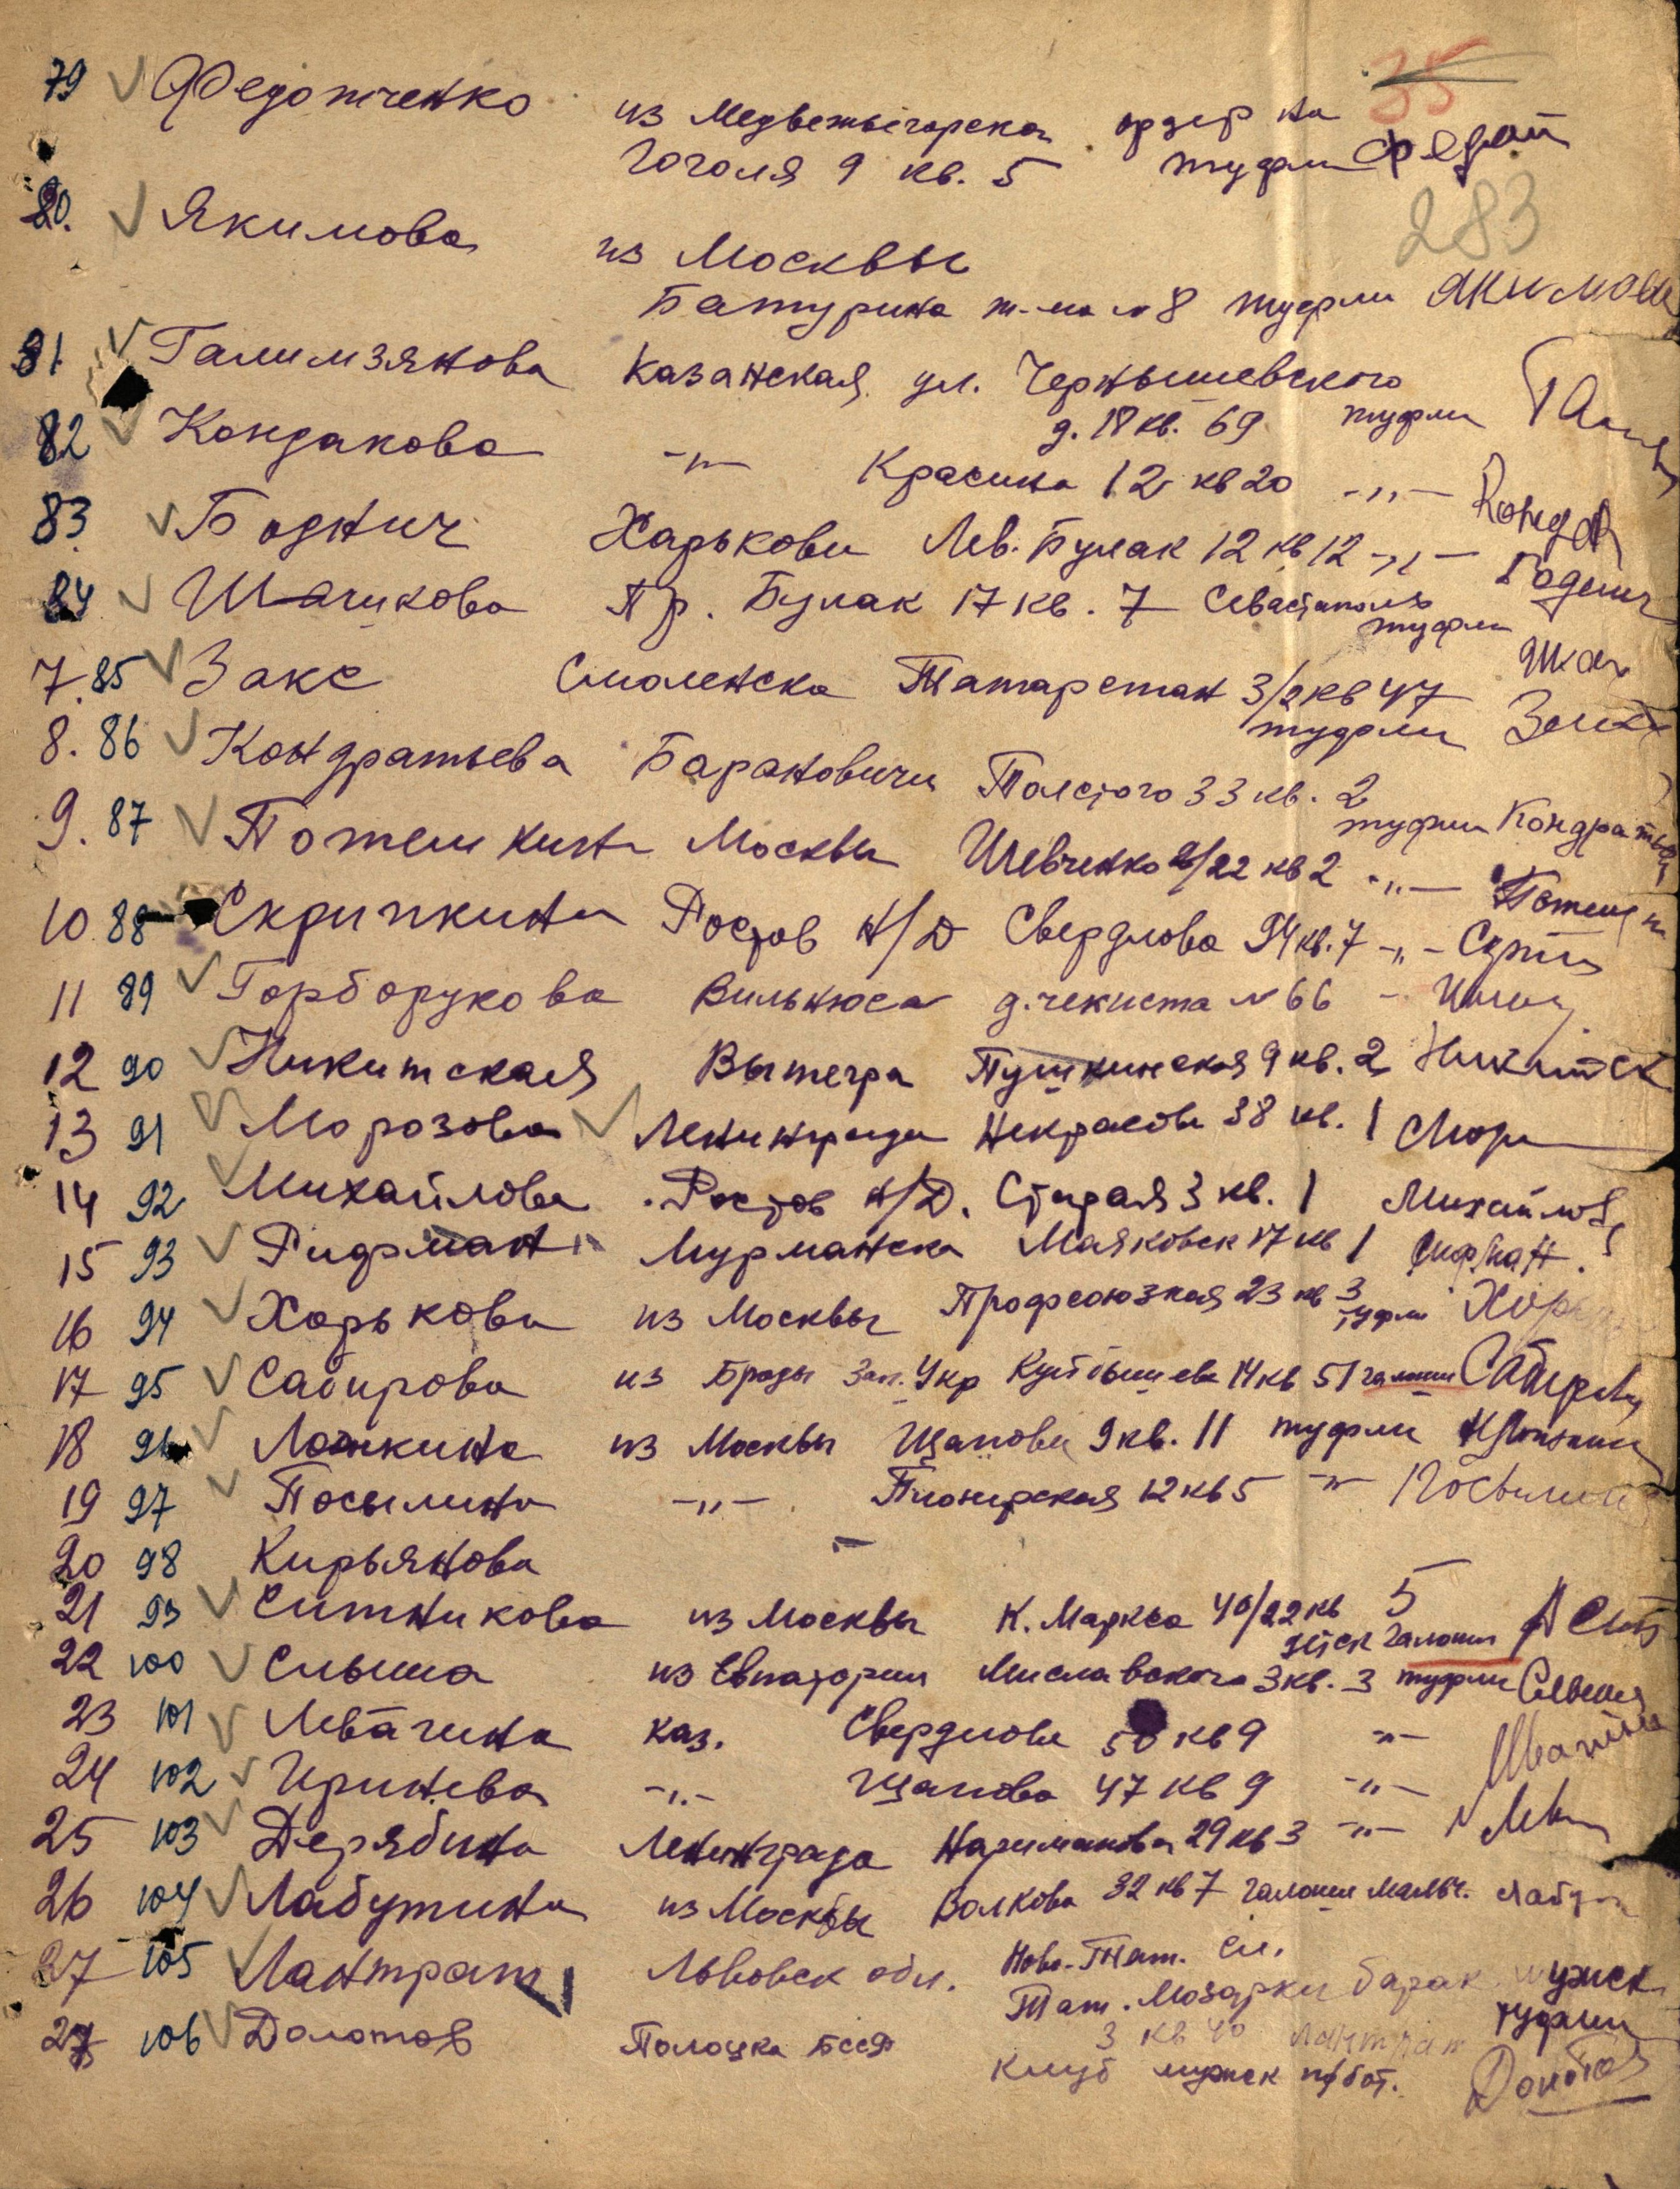 35
79 Федотченко из Медвежьегорска ордер на
Гоголя 9 кв. 5 туфли Федот
283
80. Якимова из Москвы
Батурина № 8 туфли Якимова
81 Галимзянова Казанская ул. Чернышевского
д. 18 кв. 69 туфли
82 Кондакова -"- Красина 12 кв 20 -"- Конда
83 Боднич Харькова Лев. Булак 12 кв 12 -"-
84 Шашкова Пр. Булак 17 кв. 7 Севастополь
туфли
7. 85 Закс Смоленска Татарстан 3/2 кв 47
туфли Закс
8. 86 Кондратьева Барановичи Толстого 33 кв. 2
туфли Кондратьева
9. 87 Потемкина Москвы Шевченко 2/22 кв 2 -"- Потемкин
10 88 Скрипкина Ростов н/Д Свердлова 94 кв. 7 -"- Скрип
11 89 Горборукова Вильнюса д. чекиста № 66 -
12 90 Никитская Вытегра Пушкинская 9 кв. 2 Никитск
13 91 Морозова Ленинграда Некрасова 38 кв. 1 Мор
14 92 Михайлова Ростов н/Д. Старая 3 кв. 1 Михайлов
15 93 Рифман Мурманска Маяковск 17 кв 1 Рифман.
16 94 Харькова из Москвы Профсоюзная 23 кв 3
туфли Харь
17 95 Сабирова из Броды Зап. Укр Куйбышева 14 кв 51 галоши Сабирова
18 96 Ложкина из Москвы Щапова 9 кв. 11 туфли
19 97 Посылина -"- Пионерская 12 кв 5 -"- Посылин
20 98 Кирьянова -
21 99 Ситникова из Москвы К. Маркса 40/22 кв 5
детск галоши А Сит
22 100 Слыша из Евпатории Миславского 3 кв. 3 туфли
23 101 Ивагина каз. Свердлова 50 кв 9 -"-
24 102 Иринева -"- Щапова 47 кв 9 -"-
25 103 Дерябина Ленинграда Нариманова 29 кв 3 -"-
26 104 Лабутина из Москвы Волкова 32 кв 7 галоши мальч. Лабут
27 105 Лантрат Львовск обл. Ново-Тат. сл.
Тат. Мозарки барак мужск
3 кв 40 Лантрат туфли
28 106 Долотов Полоцка БССР
клуб мужск п/бот. Долотов